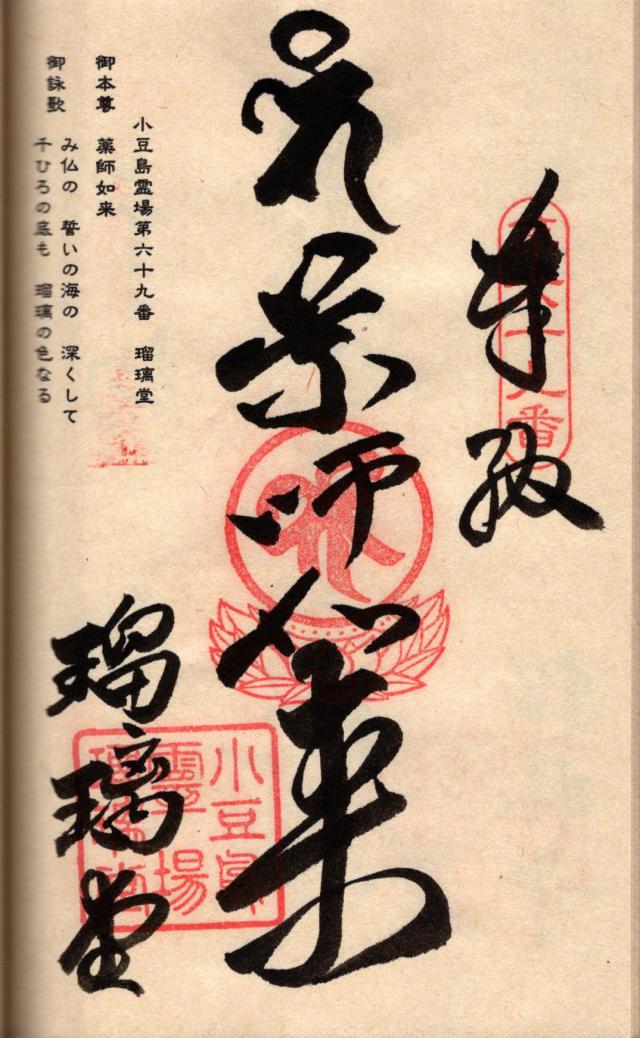 奉納
第六十九番
薬師如来
瑠璃堂
小豆島
霊場
小豆島霊場第六十九番 瑠璃堂
御本尊 薬師如来
御詠歌 み仏の 誓いの海の 深くして
千ひろの底も 瑠璃の色なる